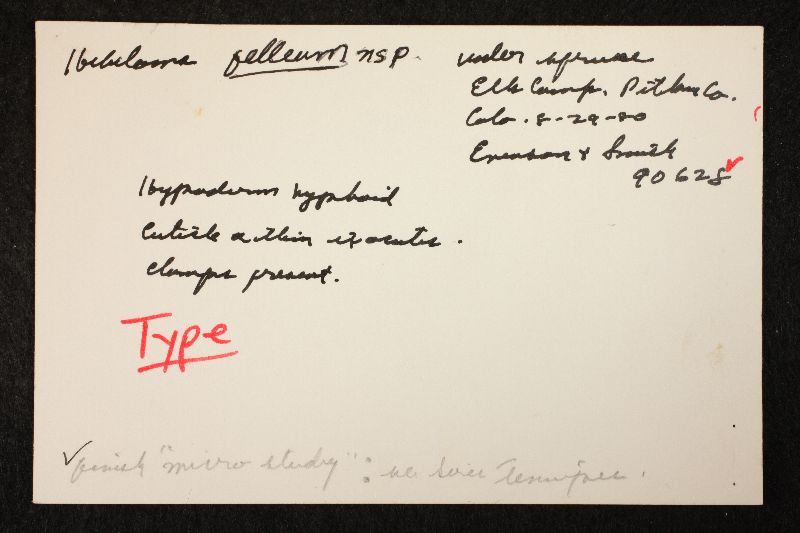 Hebeloma felleum nsp.
under spruce
Elk Camp. Pitkin Co.
Colo. 8-29-80
Evenson & Smith
90628
Hypoderm hyphoid
Cuticle a thin ixocutis.
Clamps present.
Type
✓ finish "micro study":